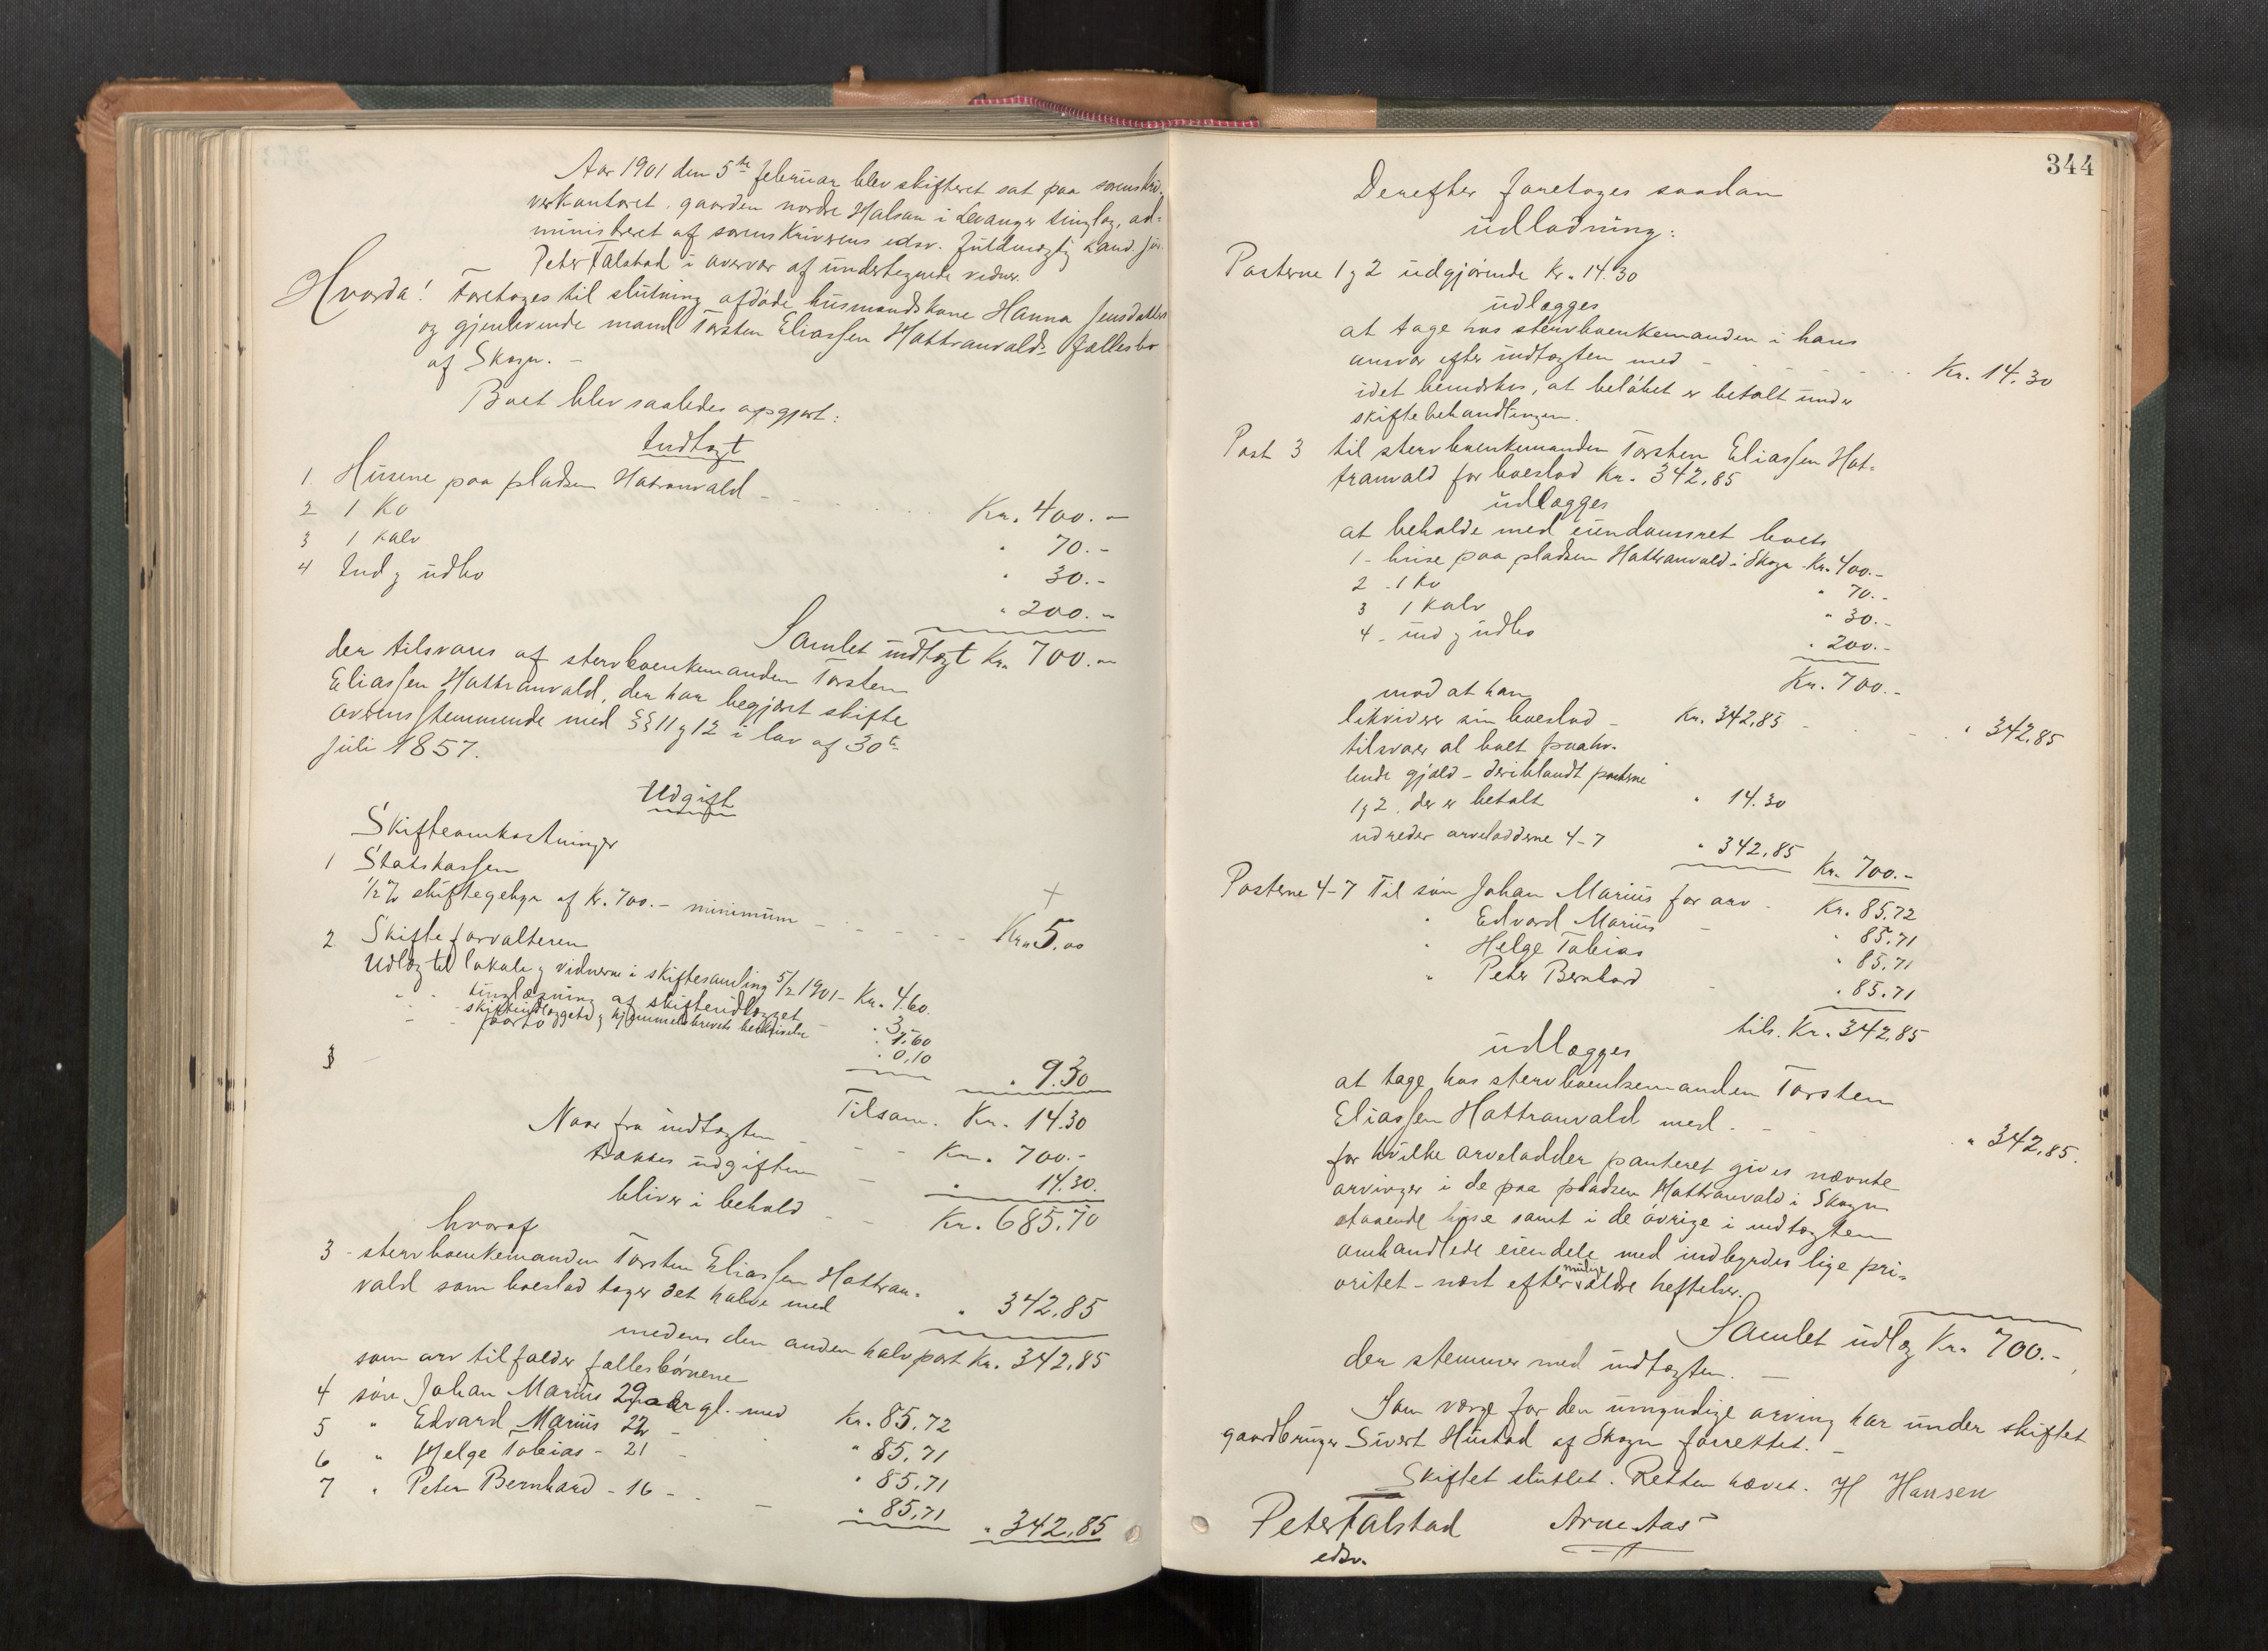 Aar 1901 den 5te februar blev skifteret sat paa sorenskri-
verkontoret, gaarden nordre Halsan i Levanger tinglag, ad-
ministreret af sorenskriverens edsv. fuldmægtig cand. jur.
Peter Falstad i overvær af undertegnede vidner.
Hvorda! Foretoges til slutning afdøde husmandskone Hanna Jensdatters
og gjenlevende mand Torsten Eliassen Hattranvalds fællesbo
af Skogn. -
Boet blev saaledes opgjort:
Indtægt
1. Husene paa pladsen Hatranvald - Kr. 400.-
2 1 Ko " 70.-
3 1 kalv " 30.-
4 Ind og udbo " 200.-
Samlet indtægt Kr. 700.-
der tilsvares af stervboenkemanden Torsten
Eliassen Hattranvald, der har begjæret skifte
overensstemmende med §§ 11 og 12 i lov af 30te
juli 1857.
Udgift
Skifteomkostninger
1 Statskassen
½ % skiftegebyr af Kr. 700.- minimum - Kr. 5.00
2 Skifteforvalteren
Udlæg til lokale og vidnerne i skiftesamling 5/2 1901 - Kr. 4.60.
" - tinglæsning af skifteudlægget - " 3.-
- - skifteudlæggets og hjemmelsbrevets beskrivelse " 1.60
- - porto " 0.10
3 " 9.30
Tilsam. Kr. 14.30
Naar fra indtægten - - - Kr. 700.-
trækkes udgiften - " 14.30.
bliver i behold - - Kr. 685.70
hvoraf
3 - stervboenkemanden Torsten Eliassen Hattran-
vald som boeslod tager det halve med " 342,85
medens den anden halvpart Kr. 342,85
som arv tilfalder fællesbørnene
4 søn Johan Marius 29 aar gl. med Kr. 85,72
5 " Edvard Marius 22 - " 85,71
6 " Helge Tobias - 21 - " 85,71
7 " Peter Bernhard - 16 - - " 85,71 " 342,85
344
Derefter foretoges saadan
udlodning:
Posterne 1 og 2 udgjørende Kr. 14.30
udlægges
at tage hos stervboenkemanden i hans
ansvar efter indtægten med - Kr. 14.30
idet bemærkes, at beløbet er betalt under
skiftebehandlingen.
Post 3 til stervboenkemanden Torsten Eliassen Hat-
tranvald for boeslod Kr. 342,85
udlægges
at beholde med eiendomsret boets
1 - huse paa pladsen Hattranvald i Skogn - Kr. 400.-
2 - 1 Ko " 70.-
3 1 kalv " 30.-
4 - ind og udbo " 200.-
Kr. 700.-
mod at han
likviderer sin boeslod - Kr. 342,85 - " 342,85
tilsvarer al boet paahvi-
lende gjæld - deriblandt posterne
1 og 2, der er betalt " 14.30
udreder arvelodderne 4-7 " 342,85 Kr. 700.-
Posterne 4-7 Til søn Johan Marius for arv - Kr. 85,72
" Edvard Marius - " 85,71
" Helge Tobias " 85,71
" Peter Bernhard - " 85,71
tils. Kr. 342,85
udlægges
at tage hos stervboenkemanden Torsten
Eliassen Hattranvald med - " 342,85.
for hvilke arvelodder panteret gives nævnte
arvinger i de paa pladsen Hattranvald i Skogn
staaende huse samt i de øvrige i indtægten
omhandlede eiendele med indbyrdes lige pri-
oritet - næst efter mulige ældre heftelser.
Samlet udlæg Kr. 700.-
der stemmer med indtægten. -
Som værge for den umyndige arving har under skiftet
gaardbruger Sivert Hustad af Skogn forrettet. -
Skiftet sluttet. Retten hævet. H Hansen
Peter Falstad Arne Aas
edsv.